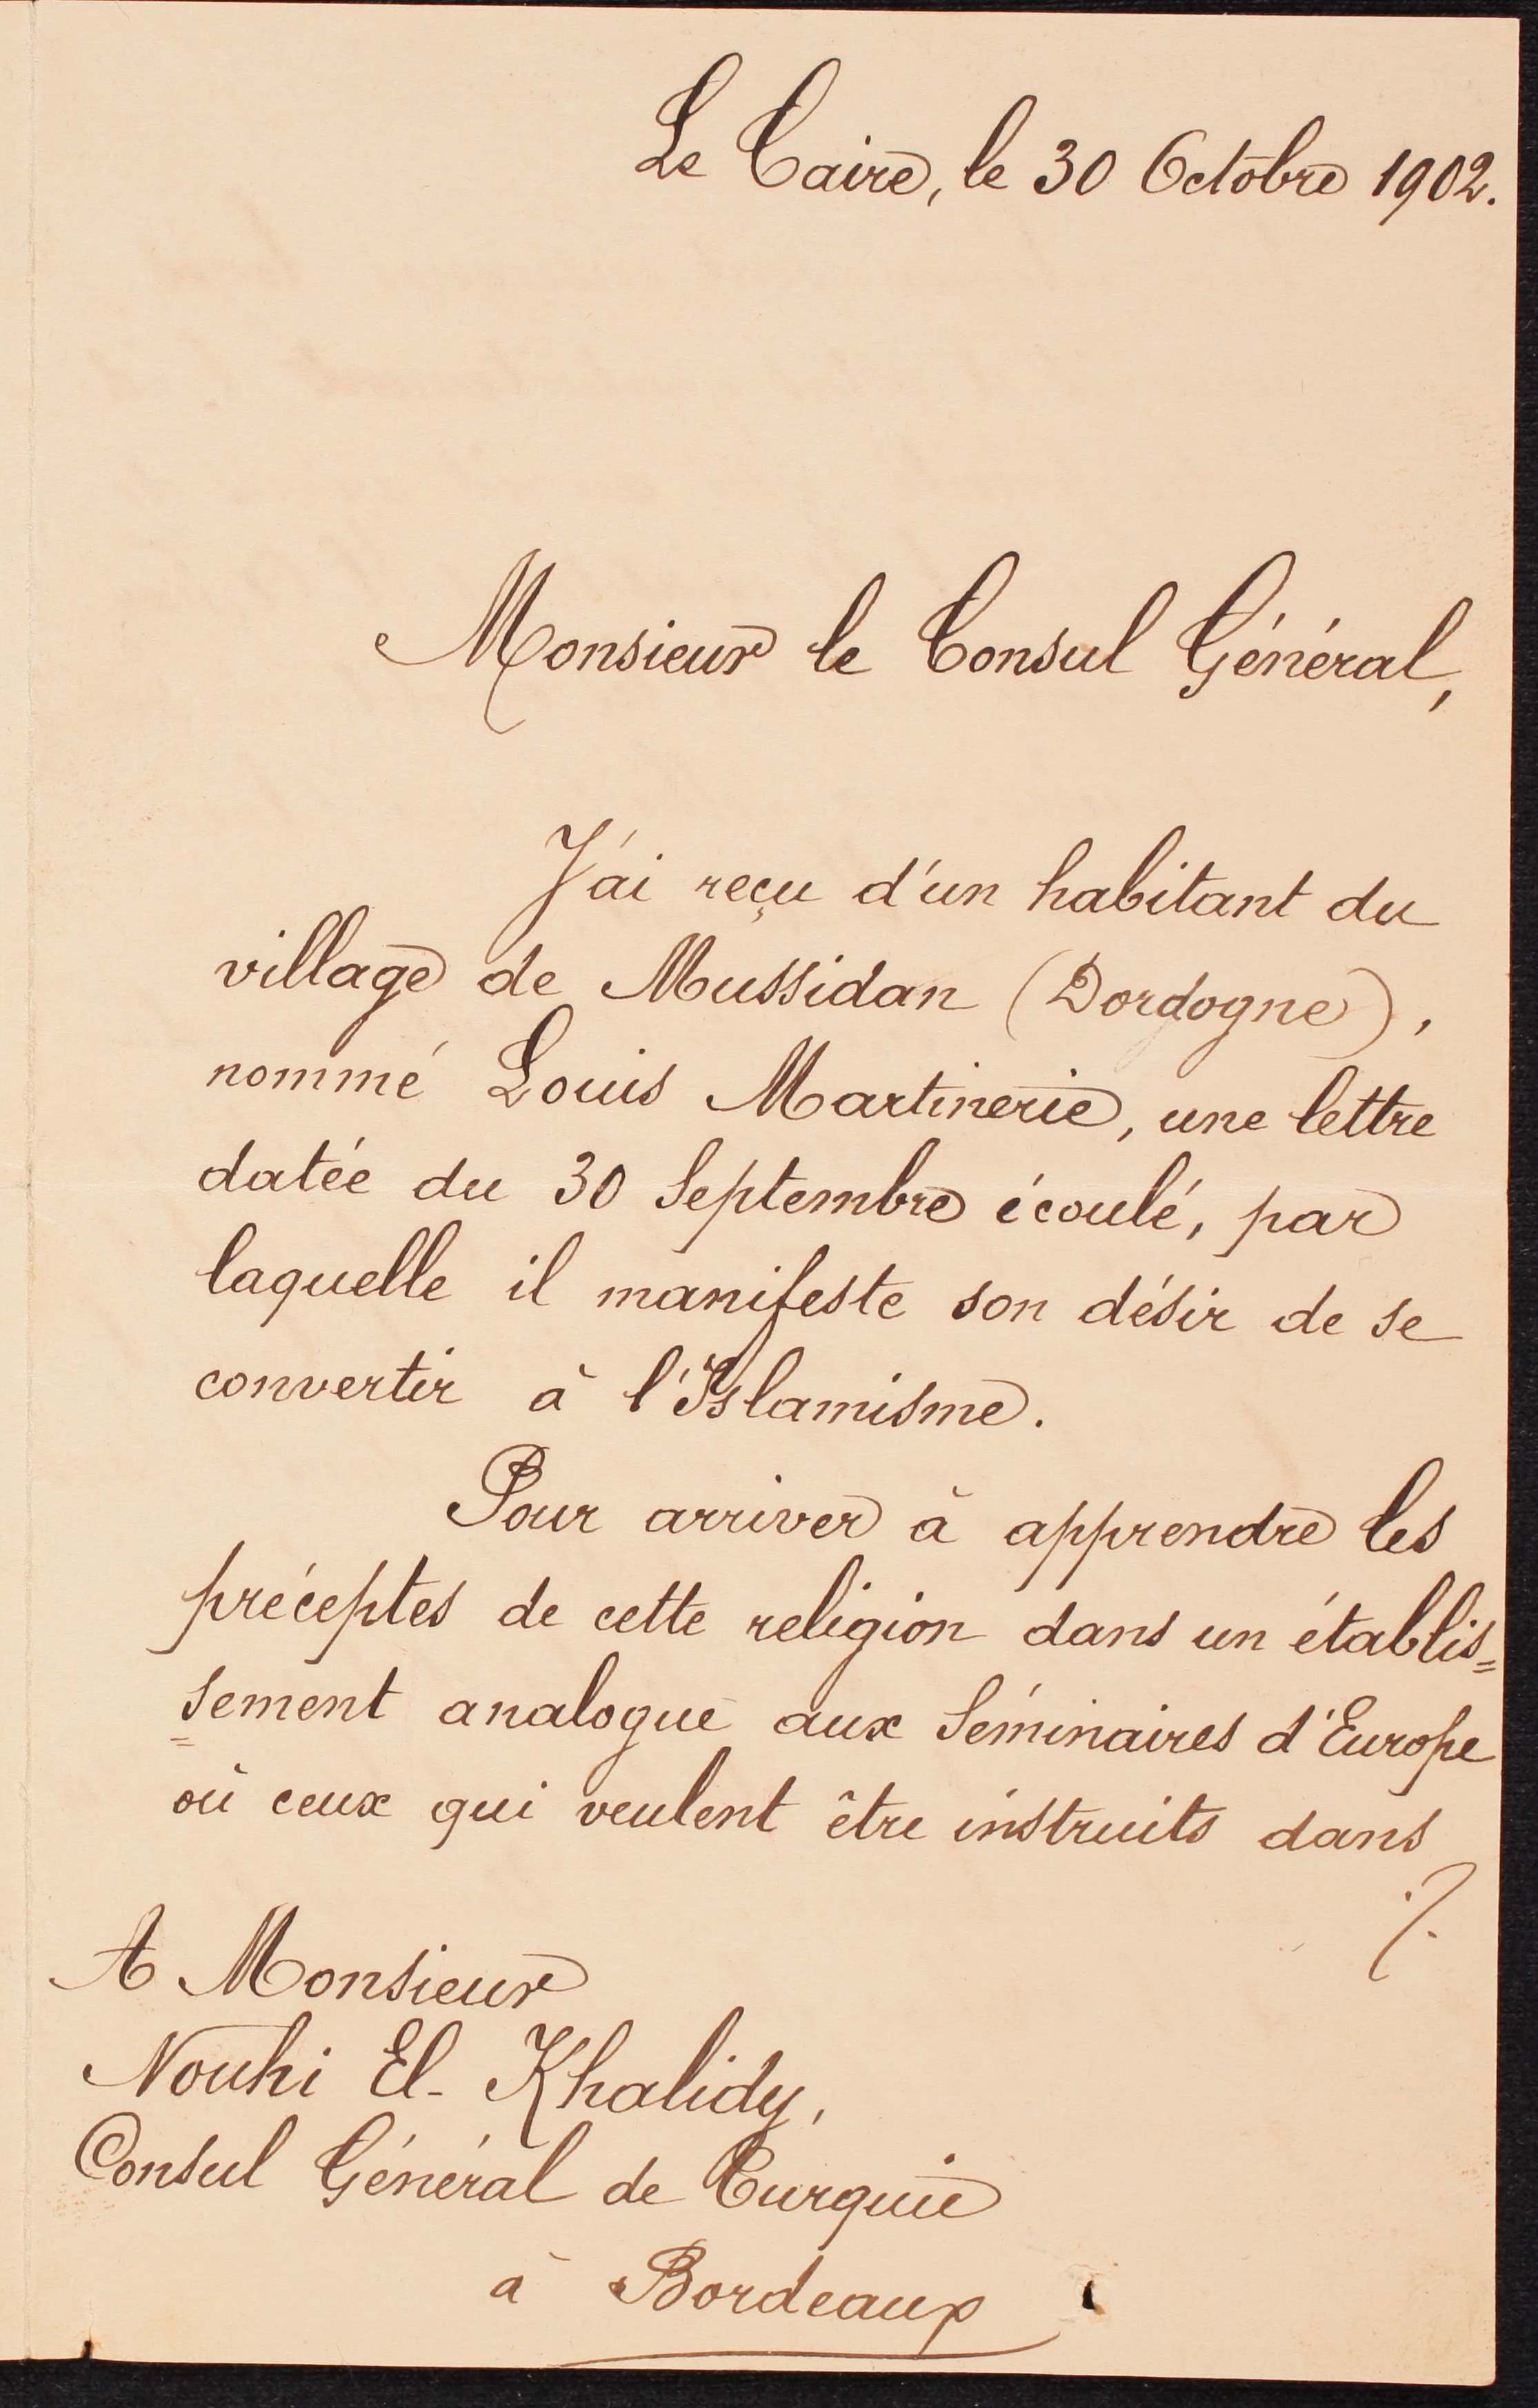 Le Caire, le 30 Octobre 1902.
Monsieur le Consul Général,
J'ai reçu d'un habitant du
village de Mussidan (Dordogne),
nommé Louis Martinerie, une lettre
datée du 30 Septembre écoulé, par
laquelle il manifeste son désir de se
convertir à l'Islamisme.
Pour arriver à apprendre les
préceptes de cette religion dans un établis=
=sement analogue aux Séminaires d'Europe
où ceux qui veulent être instruits dans
./.
A Monsieur
Nouhi El-Khalidy,
Consul Général de Turquie
à Bordeaux